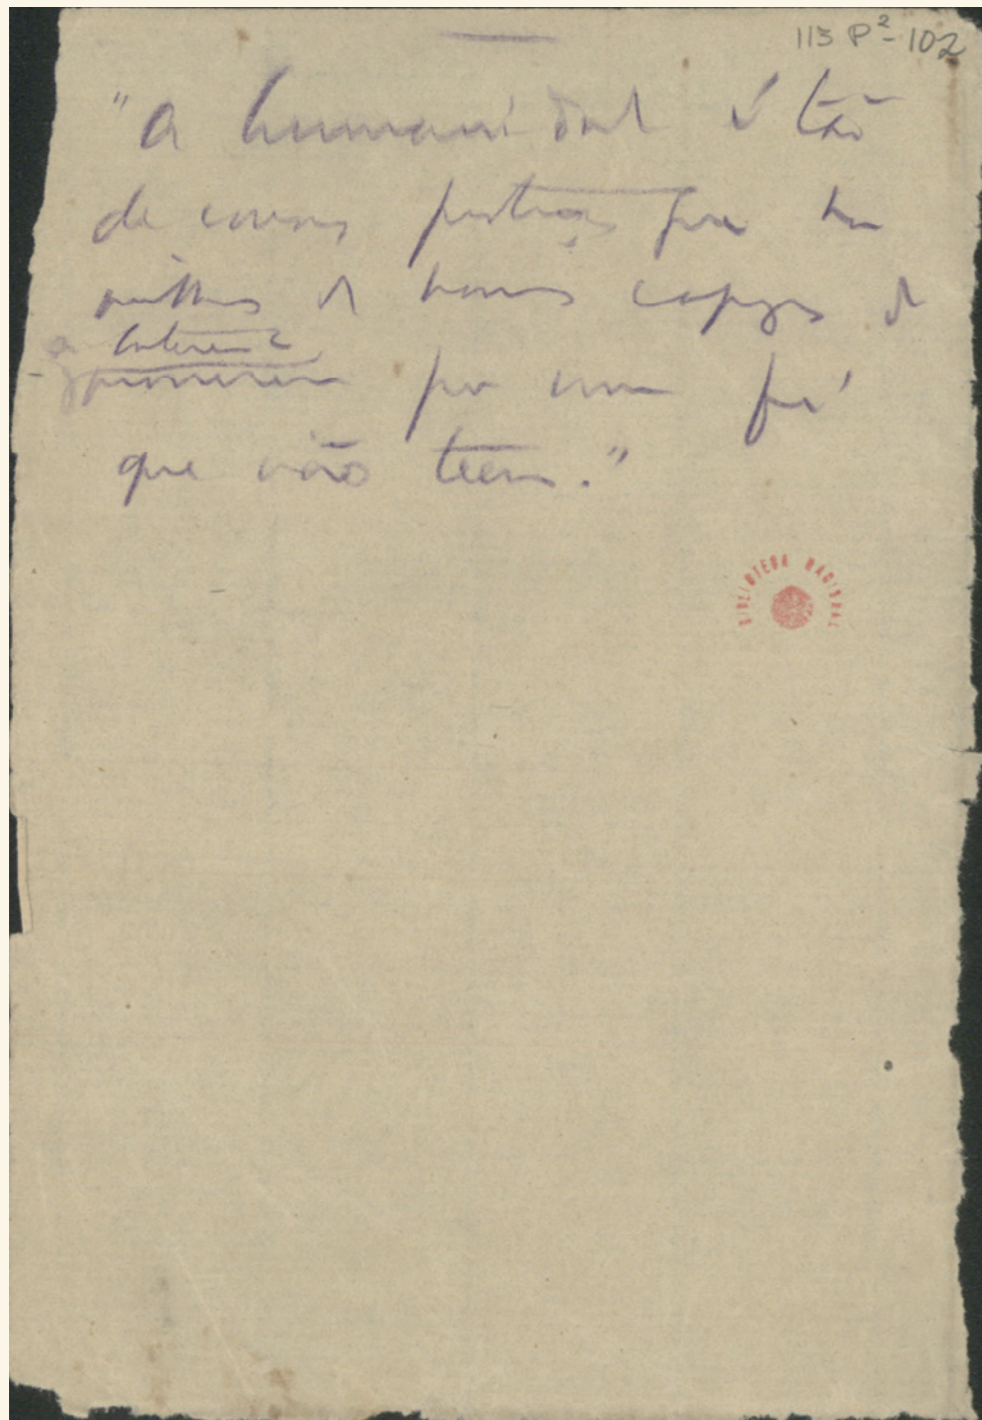 113 P²-102
"A humanidade é tão
de cousas que ha
milhões de homens capazes de
por uma fé
que não teem."
BIBLIOTECA NACIONAL